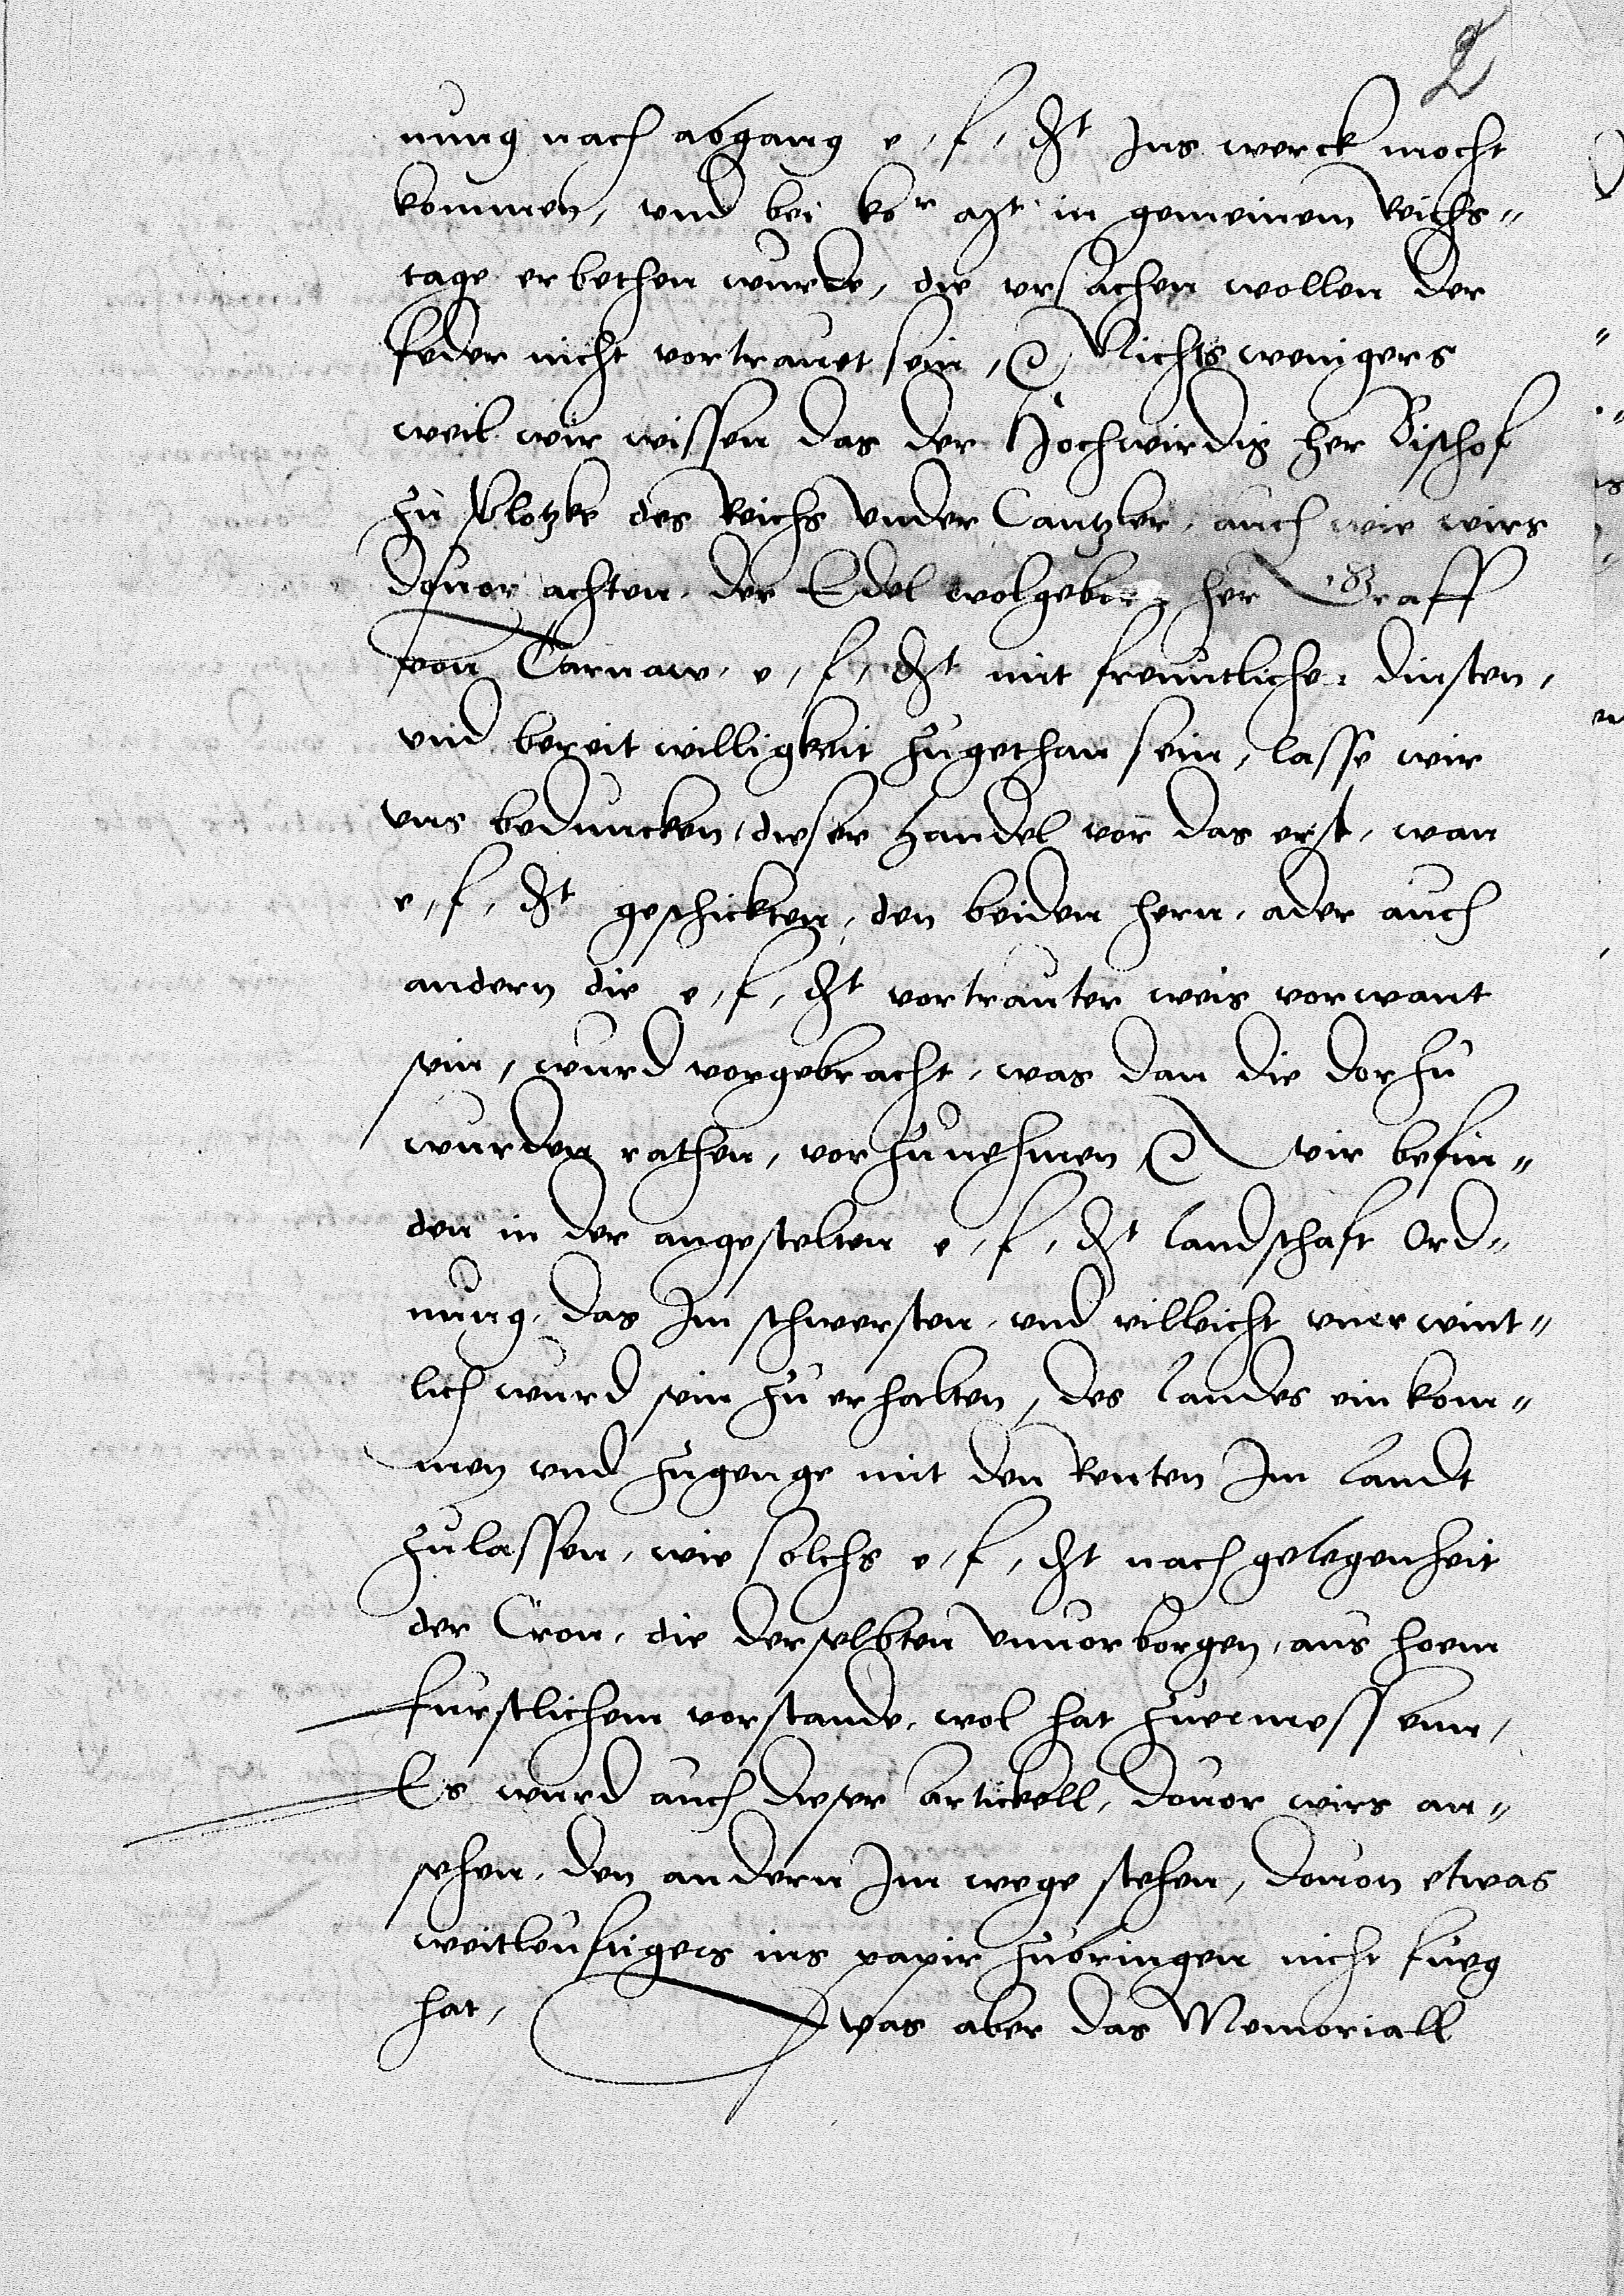 2
nung nach abgang e, f, dht Ins werck mocht
kommen, vnd bei kor mt in gemeinem Reichs„
tage erbethen wurde, die vrsachen wollen der
feder nicht vortrauet sein, Nichts wenigers
weil wir wissen das der Hochwirdig her Bischof
zu Plotzke des Reichs vnder Cantzler, auch wie wirs
douor achten, der Edel wolgeborn her Graff
von Tarnaw, e, f, dht mit freuntlichen dinsten,
vnd bereit willigkeit zugethan sein, lasse wir
vns beduncken, dieser handel vor das erst, wan
e, f, dht geschickten, den beiden hern, ader auch
andern die e, f, dht vortrauter weis vorwant
sein, wurd vorgebracht, was dan die dorzu
wurden rathen, vorzunehmen, Wir befin„
den in der angestelten e, f, dht landschaft Ord„
nung, das Im schwersten, vnd villeicht vnerwint„
lich wurd sein zu erhalten, des landes einkom„
men vnd zugenge mit den Renten Im landt
zulassen, wie solchs e, f, dht nach gelegenheit
der Cron, die derselbten vnuorborgen, aus hoem
furstlichem vorstande, wol hat zuermessenn,
Es wurd auch dieser artickell, douor wirs an„
sehen, den andern Im wege stehen, douon etwas
weitleufigers ins papir zubringen nicht fueg
hat, Was aber das Memoriall